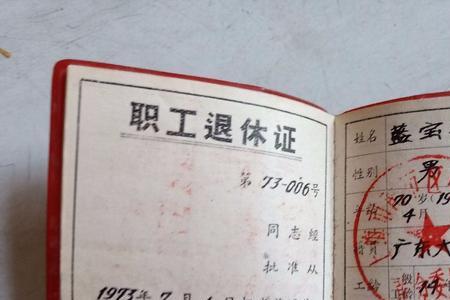 职工退休证
第 73-006号
同志经
批准从
1973年7月
姓名 蓝宝
性别 男
年龄 70岁(19
4月
广东大
工龄 14